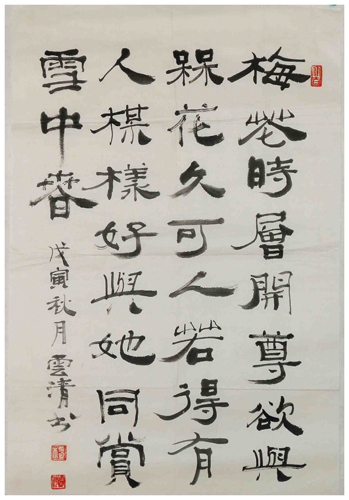 梅花時層開尊欲與
槑花久可人若得有
人模樣好與她同賞
雪中春
戊寅秋月雲清书